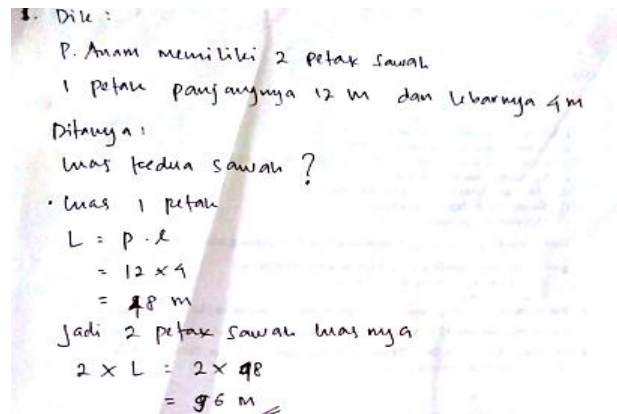 1. Dik :
P. Anam memiliki 2 petak sawah
1 petak panjangnya 12 m dan lebarnya 4 m
Ditanya :
Luas kedua sawah ?
• Luas 1 petak
L = p . l
= 12 x 4
= 48 m
Jadi 2 petak sawah luas nya
2 x L = 2 x 48
= 96 m